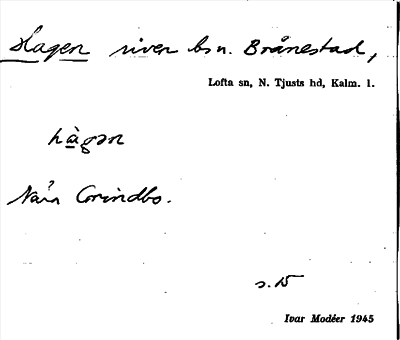 Hagen riven bs n. Brånestad,
Lofta sn, N. Tjusts hd, Kalm. l.
hàgən
Nära Grindbo.
s. 15
Ivar Modéer 1945